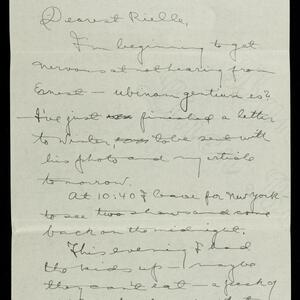 Dearest Rielle,
I'm beginning to get
nervous at not hearing from
Ernest — ubinam gentium es?
I've just finished a letter
to Winter, to be sent with
his photo and my article
tomorrow.
At 10:40 I leave for New York —
to see two shows and come
back on the midnight.
This evening I had
the kids up — maybe
they can't eat — a peck of